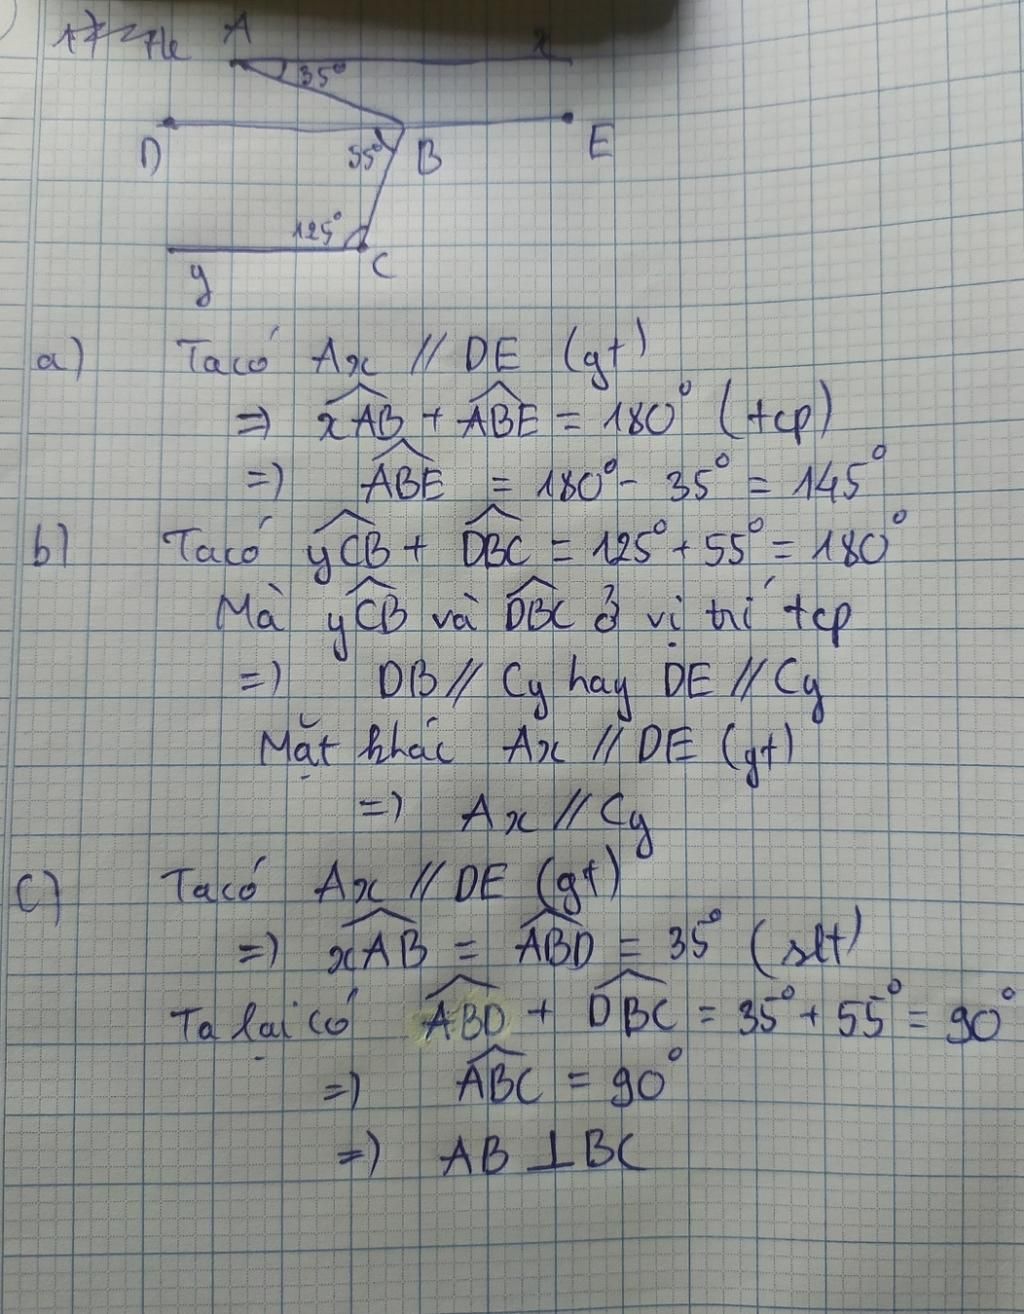 A x
35°
D B E
55°
125°
y C
a) Ta có Ax // DE (gt)
=> xAB + ABE = 180° (tcp)
=> ABE = 180° - 35° = 145°
b) Ta có yCB + DBC = 125° + 55° = 180°
Mà yCB và DBC ở vị trí tcp
=> DB // Cy hay DE // Cy
Mặt khác Ax // DE (gt)
=> Ax // Cy
c) Ta có Ax // DE (gt)
=> xAB = ABD = 35° (slt)
Ta lại có ABD + DBC = 35° + 55° = 90°
=> ABC = 90°
=> AB ⊥ BC